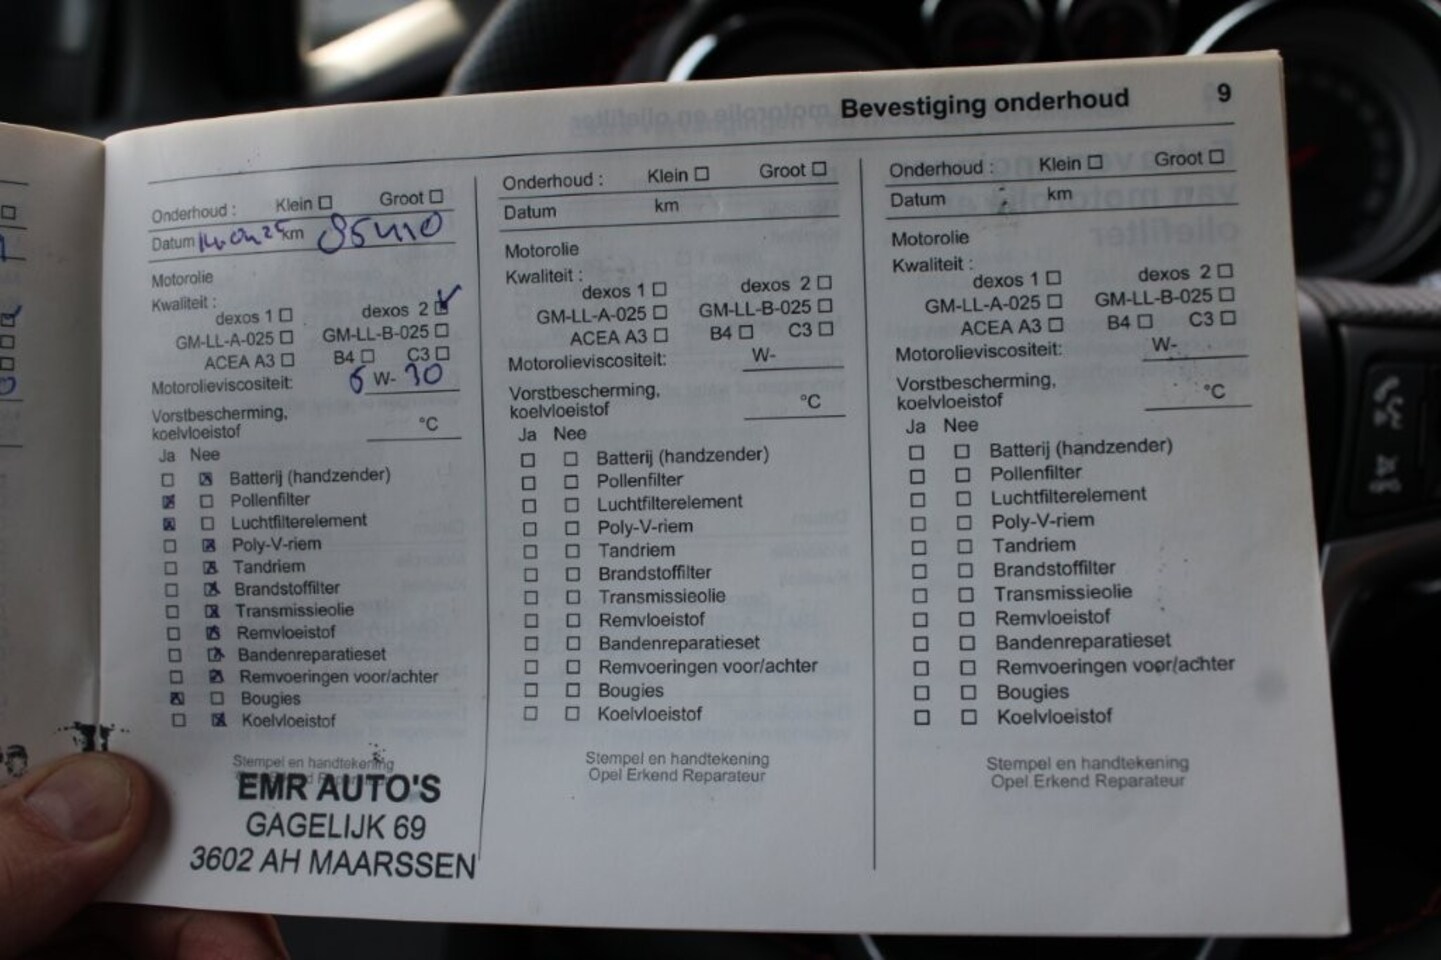 Bevestiging onderhoud 9
Onderhoud : Klein Groot
Datum km 85410
Motorolie
Kwaliteit :
dexos 1 dexos 2
GM-LL-A-025 GM-LL-B-025
ACEA A3 B4 C3
Motorolieviscositeit: 5 W- 30
Vorstbescherming,
koelvloeistof °C
Ja Nee
Batterij (handzender)
Pollenfilter
Luchtfilterelement
Poly-V-riem
Tandriem
Brandstoffilter
Transmissieolie
Remvloeistof
Bandenreparatieset
Remvoeringen voor/achter
Bougies
Koelvloeistof
Stempel en handtekening
Opel Erkend Reparateur
EMR AUTO'S
GAGELIJK 69
3602 AH MAARSSEN
Onderhoud : Klein Groot
Datum km
Motorolie
Kwaliteit :
dexos 1 dexos 2
GM-LL-A-025 GM-LL-B-025
ACEA A3 B4 C3
Motorolieviscositeit: W-
Vorstbescherming,
koelvloeistof °C
Ja Nee
Batterij (handzender)
Pollenfilter
Luchtfilterelement
Poly-V-riem
Tandriem
Brandstoffilter
Transmissieolie
Remvloeistof
Bandenreparatieset
Remvoeringen voor/achter
Bougies
Koelvloeistof
Stempel en handtekening
Opel Erkend Reparateur
Onderhoud : Klein Groot
Datum km
Motorolie
Kwaliteit :
dexos 1 dexos 2
GM-LL-A-025 GM-LL-B-025
ACEA A3 B4 C3
Motorolieviscositeit: W-
Vorstbescherming,
koelvloeistof °C
Ja Nee
Batterij (handzender)
Pollenfilter
Luchtfilterelement
Poly-V-riem
Tandriem
Brandstoffilter
Transmissieolie
Remvloeistof
Bandenreparatieset
Remvoeringen voor/achter
Bougies
Koelvloeistof
Stempel en handtekening
Opel Erkend Reparateur